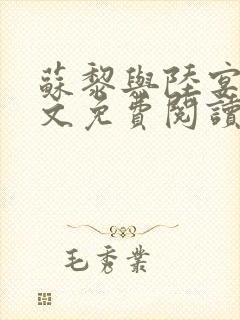 蘇黎與陸宴
文免費閱讀
毛秀業